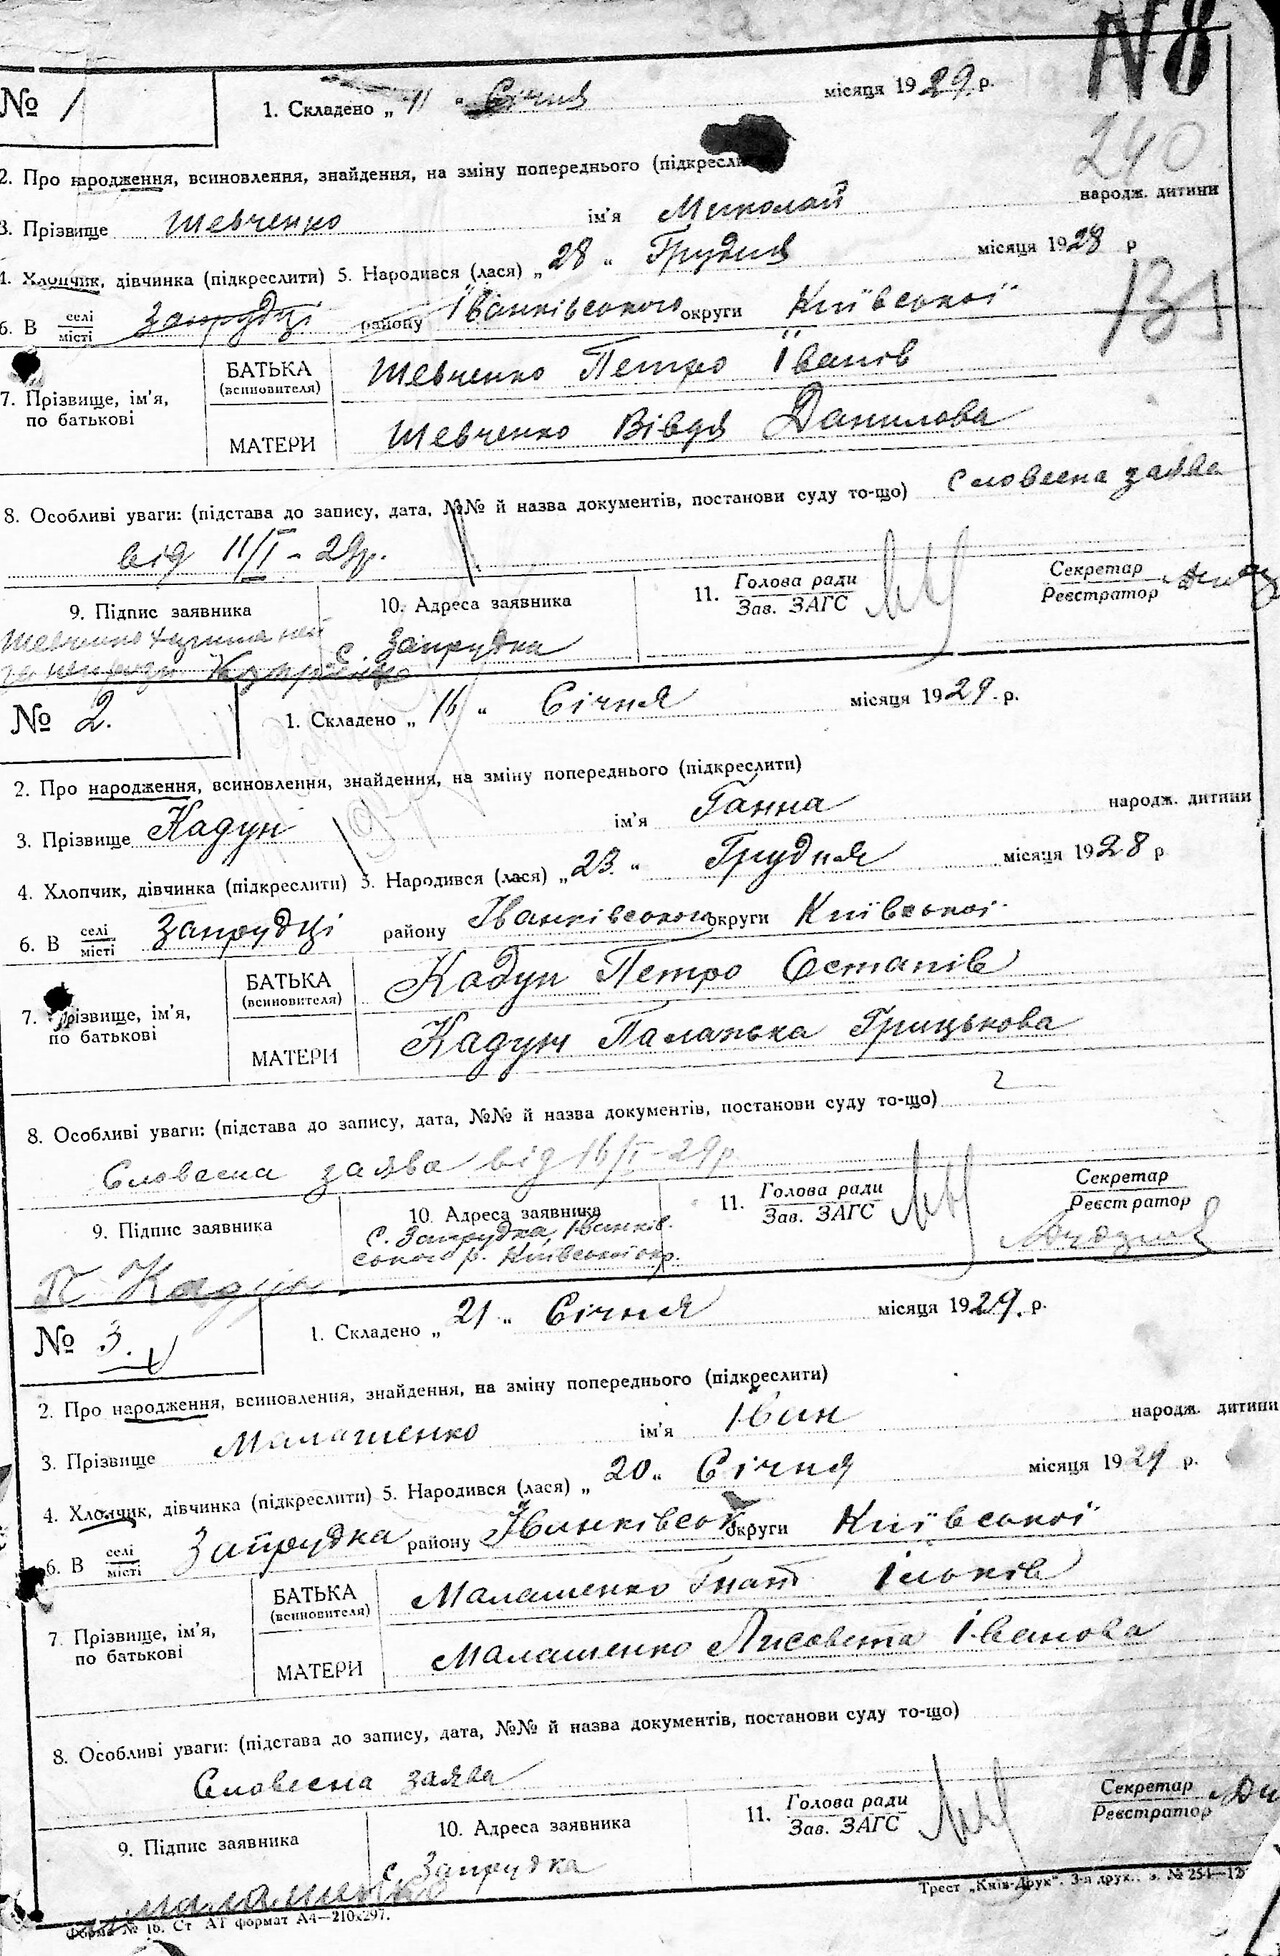 N8
240
131
№ 1
1. Складено „ 11 " Січня місяця 1929 р.
2. Про народження, всиновлення, знайдення, на зміну попереднього
3. Прізвище Шевченко ім'я Миколай народж. дитини
4. Хлопчик, дівчинка (підкреслити) 5. Народився (лася) „ 28 " Грудня місяця 1928 р
6. В селі/місті Запрудці району Іванківського округи Київської
7. Прізвище, ім'я, по батькові
БАТЬКА (всиновителя) Шевченко Петро Іванів
МАТЕРИ Шевченко Вівдя Данилова
8. Особливі уваги: (підстава до запису, дата, №№ й назва документів, постанови суду то-що) Словесна заява
від 11/I - 29р.
9. Підпис заявника
10. Адреса заявника
11. Голова ради / Зав. ЗАГС
Секретар / Реєстратор
с. Запрудка
№ 2.
1. Складено „ 16 " Січня місяця 1929. р.
2. Про народження, всиновлення, знайдення, на зміну попереднього (підкреслити)
3. Прізвище Кадун ім'я Ганна народж. дитини
4. Хлопчик, дівчинка (підкреслити) 5. Народився (лася) „ 23. " Грудня місяця 1928 р
6. В селі/місті Запрудці району Іванківського округи Київської
7. Прізвище, ім'я, по батькові
БАТЬКА (всиновителя) Кадун Петро Остапів
МАТЕРИ Кадун Паланька Грицькова
8. Особливі уваги: (підстава до запису, дата, №№ й назва документів, постанови суду то-що)
Словесна заява від 16/I - 29р
9. Підпис заявника
10. Адреса заявника
11. Голова ради / Зав. ЗАГС
Секретар / Реєстратор
С. Запрудка, Іванків-
ського р. Київської окр.
П Кадун
№ 3.
1. Складено „ 21 " Січня місяця 1929. р.
2. Про народження, всиновлення, знайдення, на зміну попереднього (підкреслити)
3. Прізвище Малашенко ім'я Іван народж. дитини
4. Хлопчик, дівчинка (підкреслити) 5. Народився (лася) „ 20 " Січня місяця 1929 р.
6. В селі/місті Запрудка району Іванківськ округи Київської
7. Прізвище, ім'я, по батькові
БАТЬКА (всиновителя) Малашенко Гнат Ільків
МАТЕРИ Малашенко Лисовета Іванова
8. Особливі уваги: (підстава до запису, дата, №№ й назва документів, постанови суду то-що)
Словесна заява
9. Підпис заявника
10. Адреса заявника
11. Голова ради / Зав. ЗАГС
Секретар / Реєстратор
с. Запрудка
Малашенко
Форма № 16. Ст АТ формат А4—210х297.
Трест „Київ-Друк". 3-я друк., з. № 254—12